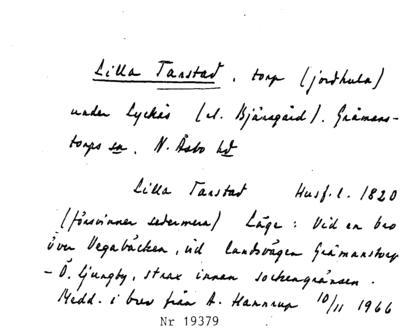 Lilla Tanstad, torp (jordkula)
under Lyckås (el. Bjärsgård). Gråmans-
torps sn, N. Åsbo hd
Lilla Tanstad Husf.l. 1820
(försvinner sedermera) Läge: Vid en bro
över Vegabäcken, vid landsvägen Gråmanstorp
- Ö. Ljungby, strax innan sockengränsen.
Medd. i brev från A. Hannrup 10/11 1966
Nr 19379